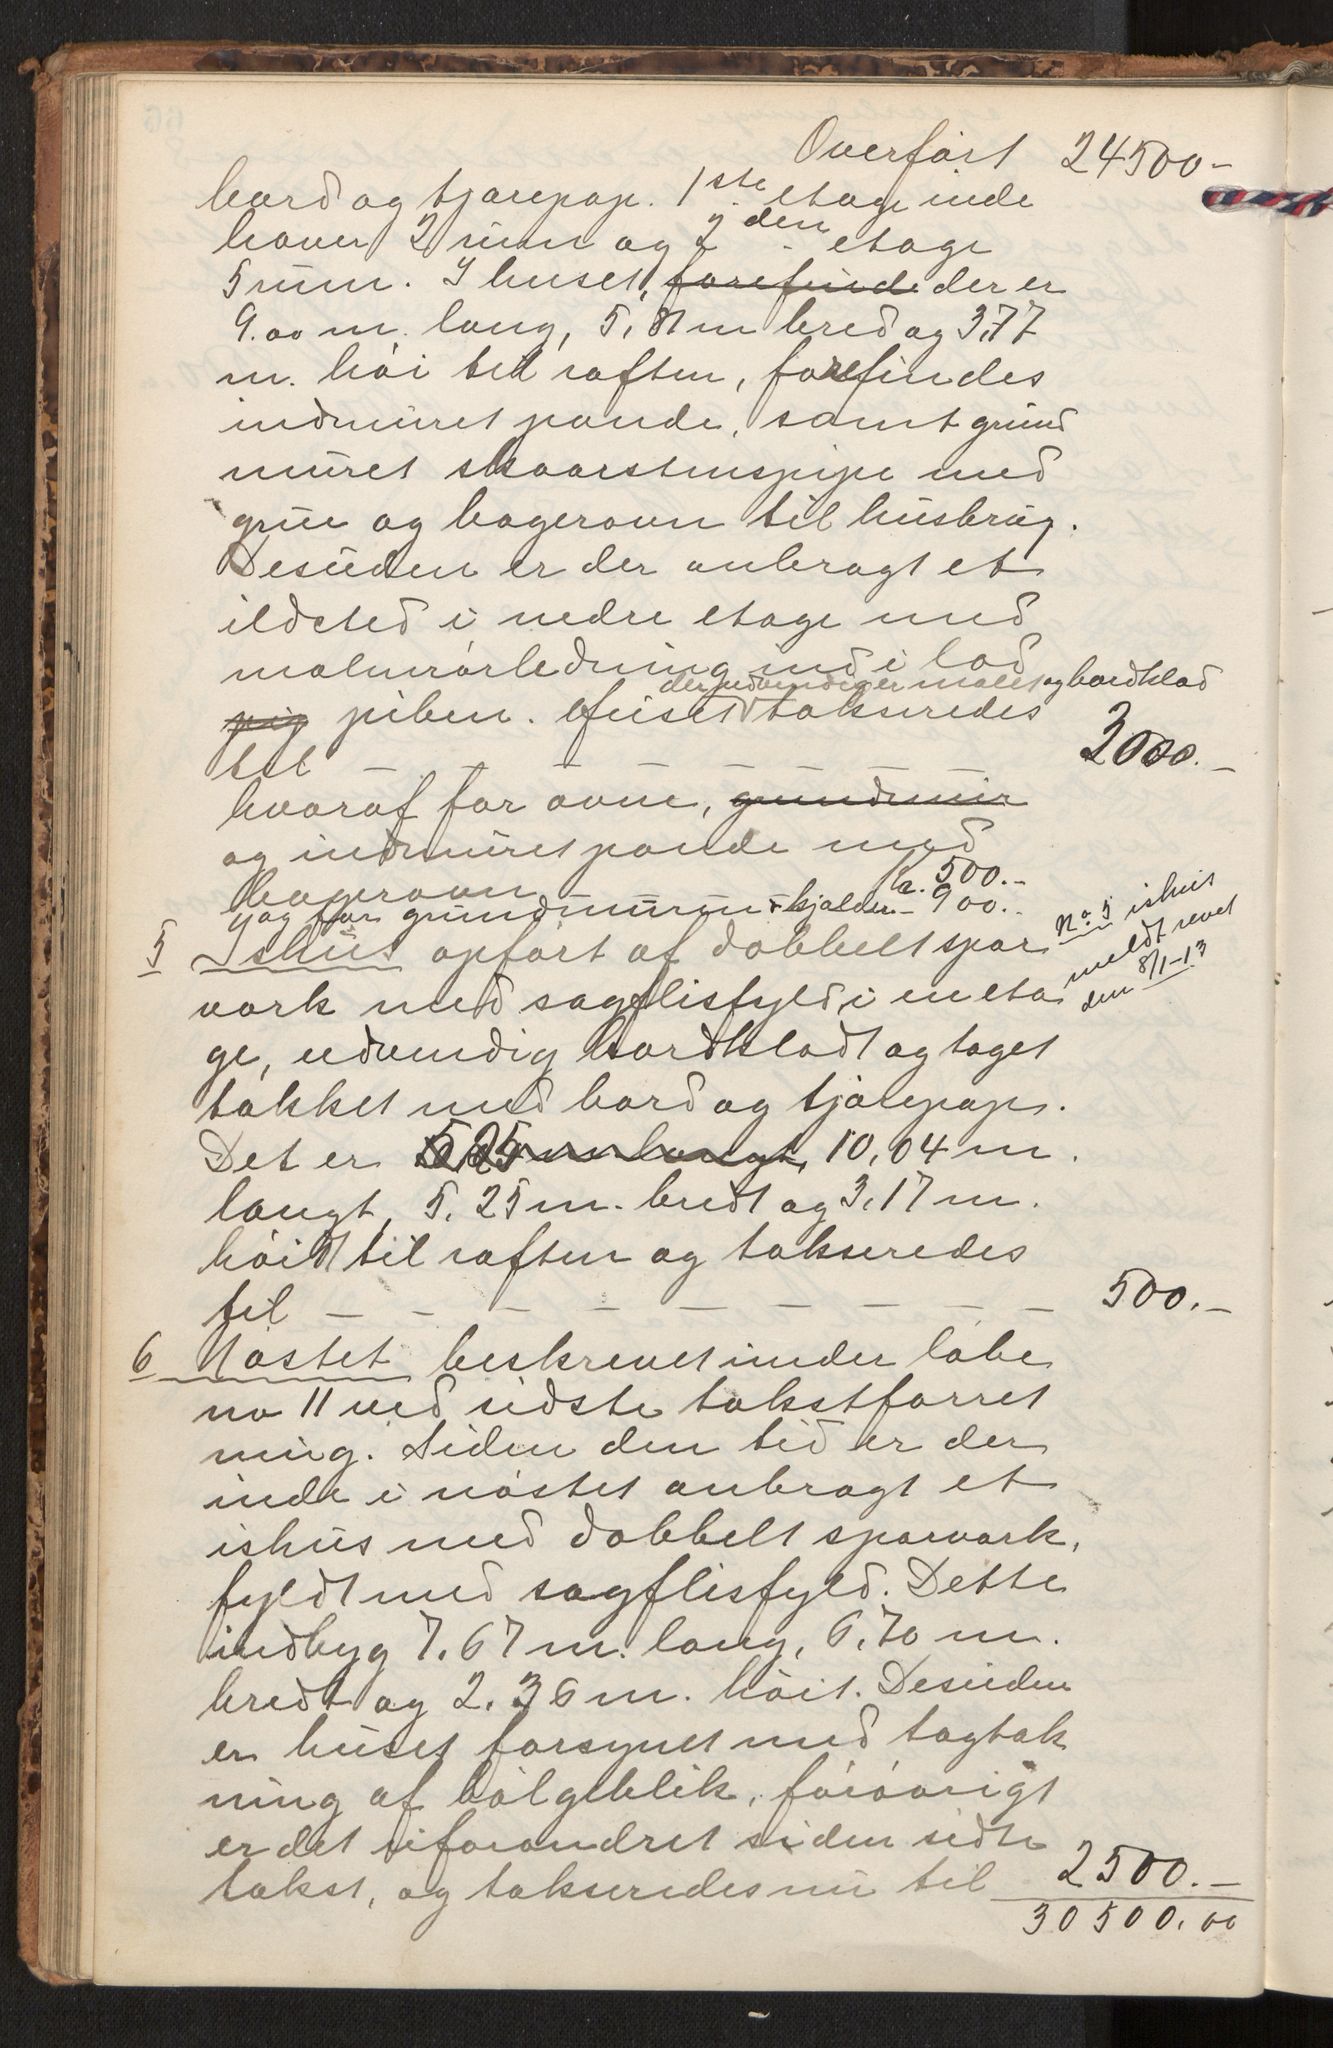 Overført 24500.-
bord og tjærepap. 1ste etage inde
haver 2 rum og 2den etage
5 rum. I huset, forefinde der er
9.00 m. lang, 5,81 m bred og 3,77
m. høi til raften, forefindes
indmuret pande, samt grund
muret skorstenspipe med
grue og bagerovn til husbrug.
Desuden er der anbragt et
ildsted i nedre etage med
malmrørledning ind i lad
der udvendig er malet og bordklad
pig piben. Huset taksseredes
til — — — — — — — — 3000.-
hvoraf for ovne, grundmur
og indmuret pande med
bagerovn kr. 500.-
og for grundmuren i kjelder - 900.-
No 5 ishus
meldt revet
den 8/1-13
5 Ishus opført af dobbelt spar
værk med sagflisfyld i en eta
ge, udvendig bordklædt og taget
tækket med bord og tjærepap.
Det er 5,25 m langt, 10,04 m.
langt, 5,25 m. bredt og 3,17 m.
høidt til raften og taksseredes
til — — — — — — — — — 500.-
6 Nøstet beskrevet under løbe
no 11 ved sidste takstforret
ning. Siden den tid er der
inde i nøstet anbragt et
ishus med dobbelt sparværk,
fyldt med sagflisfyld. Dette
indbyg 7.67 m. lang, 6,70 m.
bredt og 2.36 m. høit. Desuden
er huset forsynet med tagtæk
ning af bølgeblik, forøvrigt
er det uforandret siden sidste
takst, og taksseredes nu til 2500.-
30500.00